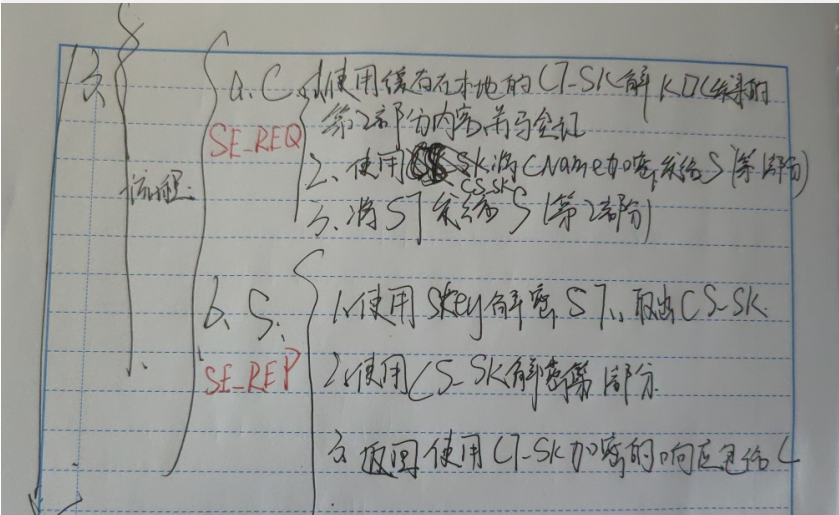 3.
流程:
a. C
SE_REQ
1.使用缓存在本地的CT-SK解KDC结果的
第2部分内容并与验证
2、使用SK将CName加密,发给S(第1部分)
CS_SK
3、将ST发给S(第2部分)
b. S.
SE_REP
1.使用Skey解密ST,取出CS-SK.
2.使用CS-SK解密第1部分.
3.返回使用CT-SK加密的响应包给C